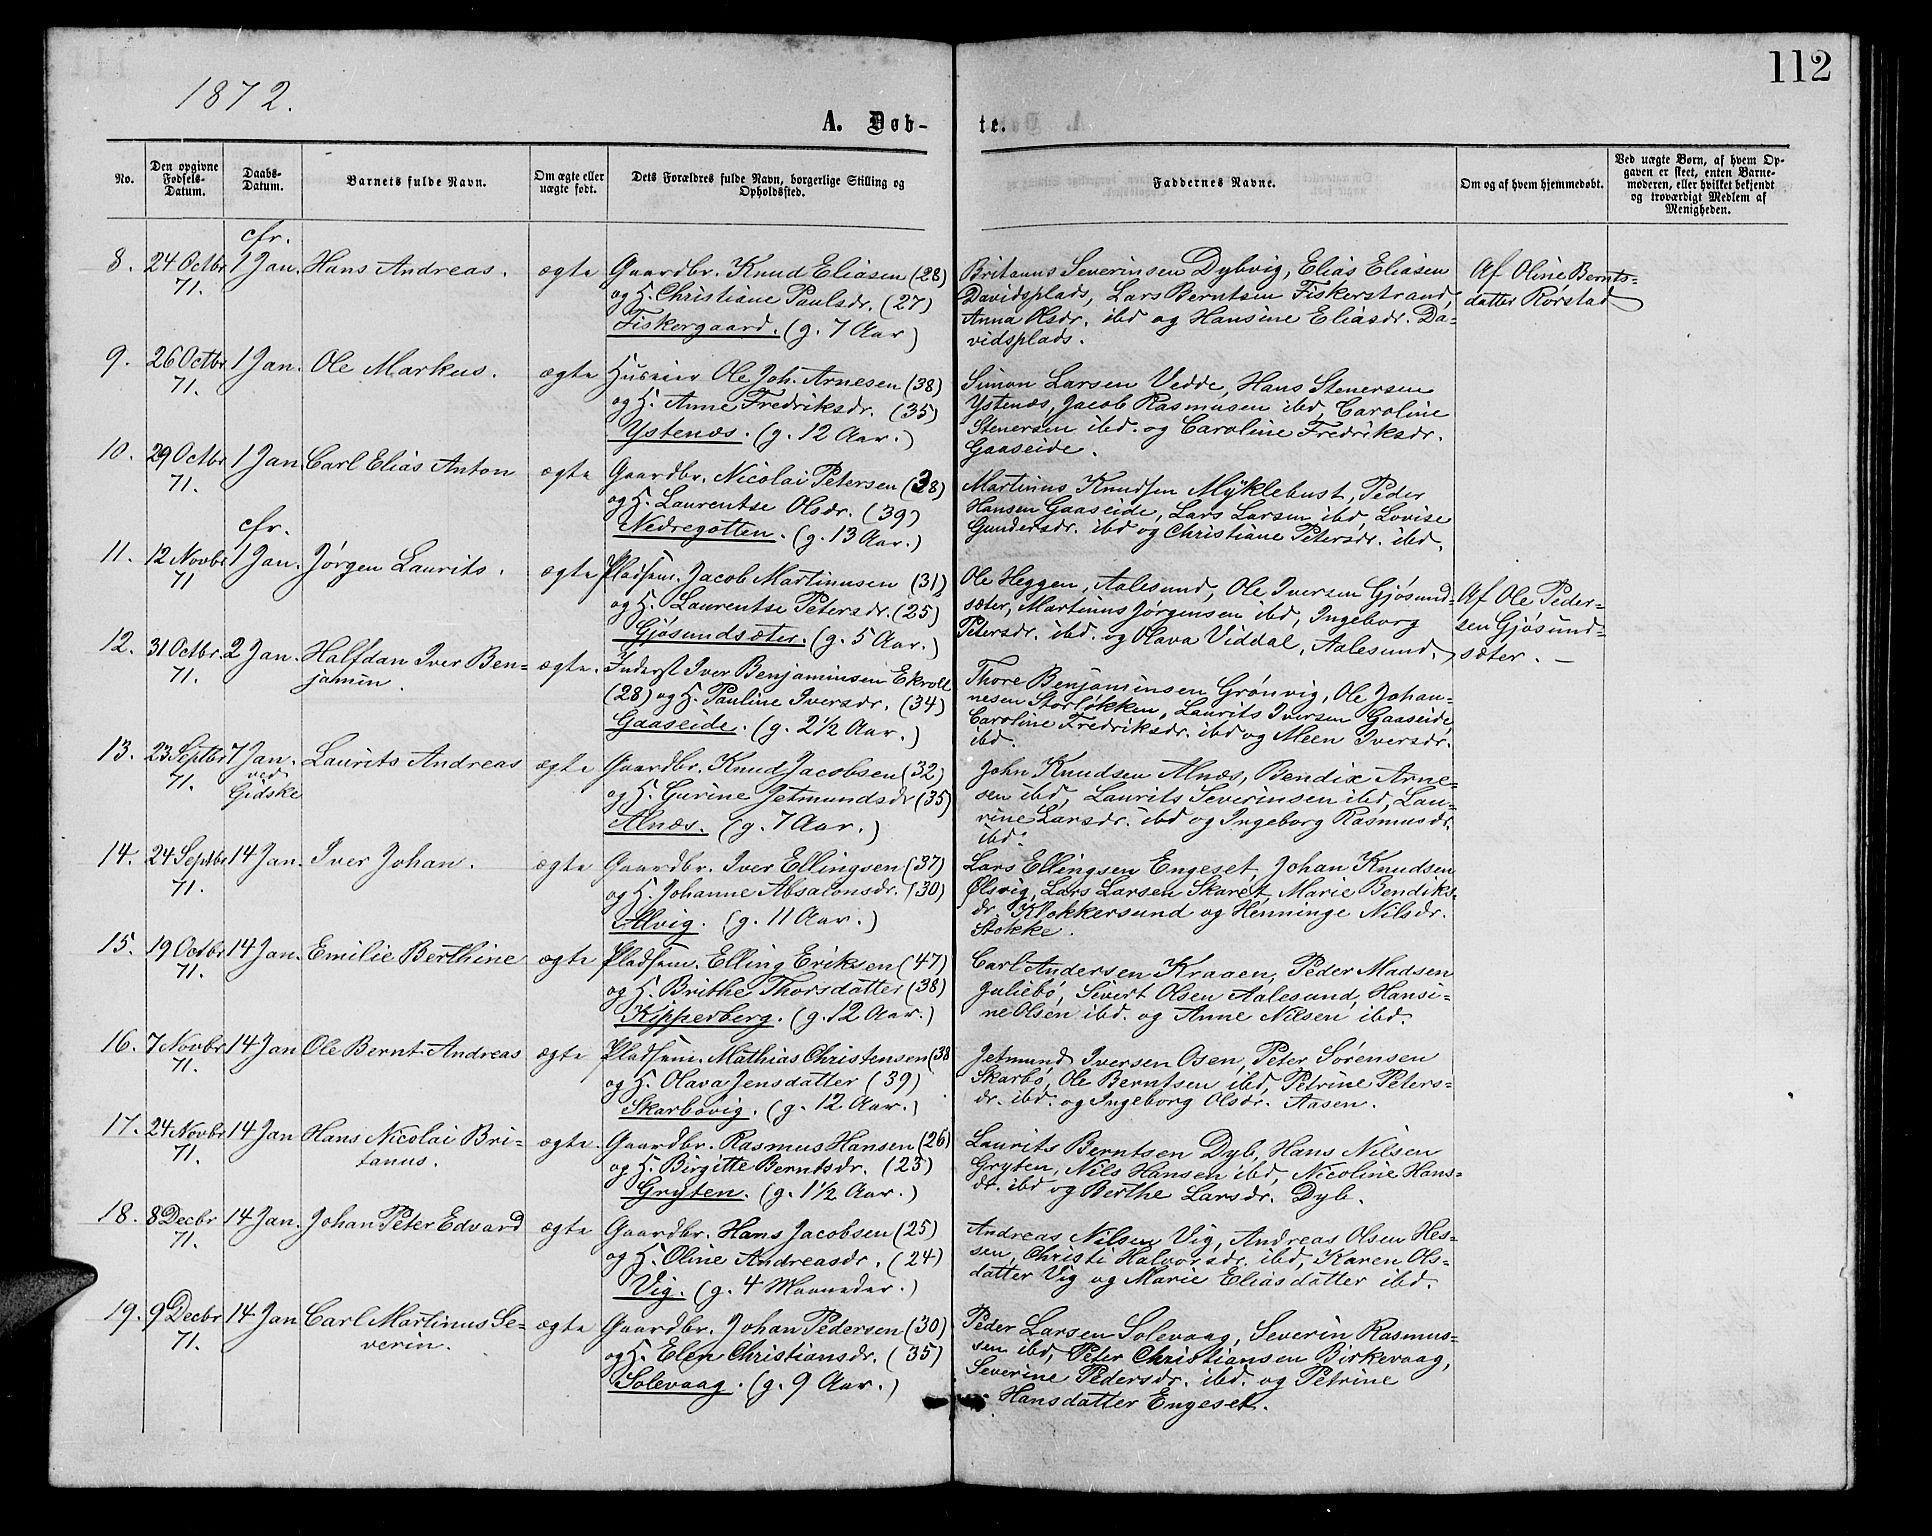 112
1872.
A. Døb-
te.
No.
Den opgivne Fødsels-Datum.
Daabs-Datum.
Barnets fulde Navn.
Om ægte eller uægte født.
Dets Forældres fulde Navn, borgerlige Stilling og Opholdssted.
Faddernes Navne.
Om og af hvem hjemmedøbt.
Ved uægte Børn, af hvem Opgaven er skeet, enten Barnemoderen, eller hvilket bekjendt og troværdigt Medlem af Menigheden.
cfr.
8. 24 Octbr 71. 1 Jan. Hans Andreas. ægte
Gaardbr. Knud Eliasen (28)
og H. Christiane Paulsdr. (27)
Fiskergaard. (g. 7 Aar)
Britanus Severinsen Dybvig, Elias Eliasen
Davidsplads, Lars Berntsen Fiskerstrand,
Anna Olsdr. ibd og Hansine Eliasdr. Da-
vidsplads.
Af Oline Bernts-
datter Rørstad
9. 26 Octbr 71. 1 Jan. Ole Markus. ægte
Huseier Ole Joh. Arnesen (38)
og H. Anne Fredriksdr. (35)
Ystenæs. (g. 12 Aar.)
Simon Larsen Vedde, Hans Stenersen
Ystenæs, Jacob Rasmusen ibd, Caroline
Stenersen ibd. og Caroline Fredriksdr.
Gaaseide.
10. 29 Octbr 71. 1 Jan. Carl Elias Anton ægte
Gaardbr. Nicolai Petersen (38)
og H. Laurentse Olsdr. (39)
Nedregotten. (g. 13 Aar.)
Martinus Knudsen Myklebust, Peder
Hansen Gaaseide, Lars Larsen ibd, Lovise
Gundersdr. ibd og Christiane Petersdr. ibd.
cfr.
11. 12 Novbr 71 1 Jan. Jørgen Laurits. ægte
Pladsm. Jacob Martinusen (31)
og H. Laurentse Petersdr. (25)
Gjøsundsæter. (g. 5 Aar.)
Ole Heggen, Aalesund, Ole Iversen Gjøsund-
sæter, Martinus Jørgensen ibd, Ingeborg
Petersdr. ibd. og Olava Viddal, Aalesund.
Af Ole Peder-
sen Gjøsund-
sæter. –
12. 31 Octbr. 71. 2 Jan. Halfdan Iver Ben-
jamin. ægte.
Inderst Iver Benjaminsen Ekroll
(28) og H. Pauline Iversdr. (34)
Gaaseide. (g. 2½ Aar.)
Thore Benjaminsen Grønvig, Ole Johan-
nesen Storløkken, Laurits Iversen Gaaseide,
Caroline Fredriksdr. ibd og Meen Iversdr.
ibd.
13. 23 Septbr 71. 7 Jan. ved Gidske Laurits Andreas ægte
Gaardbr. Knud Jacobsen (32)
og H. Gurine Jetmundsdr (35)
Alnæs. (g. 7 Aar.)
John Knudsen Alnæs, Bendix Arne-
sen ibd, Laurits Severinsen ibd, Lau-
rine Larsdr. ibd og Ingeborg Rasmusdr.
ibd.
14. 24 Septbr 71. 14 Jan. Iver Johan. ægte
Gaardbr. Iver Ellingsen (37)
og H. Johanne Absalonsdr. (30)
Alvig. (g. 11 Aar.)
Lars Ellingsen Engeset, Johan Knudsen
Ølsvig, Lars Larsen Skaret, Marie Bendiks-
dr. Klokkersund og Henninge Nilsdr.
Stokke.
15. 19 Octbr 71. 14 Jan. Emilie Berthine ægte
Pladsm. Elling Eriksen (47)
og H. Brithe Thorsdatter (38)
Kipperberg. (g. 12 Aar.)
Carl Andersen Kraaen, Peder Madsen
Juliebø, Sivert Olsen Aalesund, Hansi-
ne Olsen ibd. og Anne Nilsen ibd.
16. 7 Novbr. 71. 14 Jan Ole Bernt Andreas ægte
Pladsm. Mathias Christensen (38
og H. Olava Jensdatter (39)
Skarbøvig. (g. 12 Aar.)
Jetmund Iversen Osen, Peter Sørensen
Skarbø, Ole Berntsen ibd, Petrine Peters-
dr. ibd. og Ingeborg Olsdr. Aasen.
17. 24 Novbr 71. 14 Jan Hans Nicolai Bri-
tanus. ægte.
Gaardbr. Rasmus Hansen (26)
og H. Birgitte Berntsdr. (23)
Gryten. (g. 1½ Aar.)
Laurits Berntsen Dyb, Hans Nilsen
Gryten, Nils Hansen ibd, Nicoline Hans-
dr. ibd og Berthe Larsdr. Dyb.
18. 8 Decbr 71. 14 Jan. Johan Peter Edvard ægte
Gaardbr. Hans Jacobsen (25)
og H. Oline Andreasdr. (24)
Vig. (g. 4 Maaneder.)
Andreas Nilsen Vig, Andreas Olsen Hes-
sen, Christi Halvorsdr. ibd, Karen Ols-
datter Vig og Marie Eliasdatter ibd.
19. 9 Decbr 71. 14 Jan Carl Martinus Se-
verin. ægte
Gaardbr. Johan Pedersen (30)
og H. Elen Christiansdr. (35)
Solevaag. (g. 9 Aar.)
Peder Larsen Solevaag, Severin Rasmus-
sen ibd, Peter Christiansen Birkevaag,
Severine Pedersdr. ibd. og Petrine
Hansdatter Engeset.